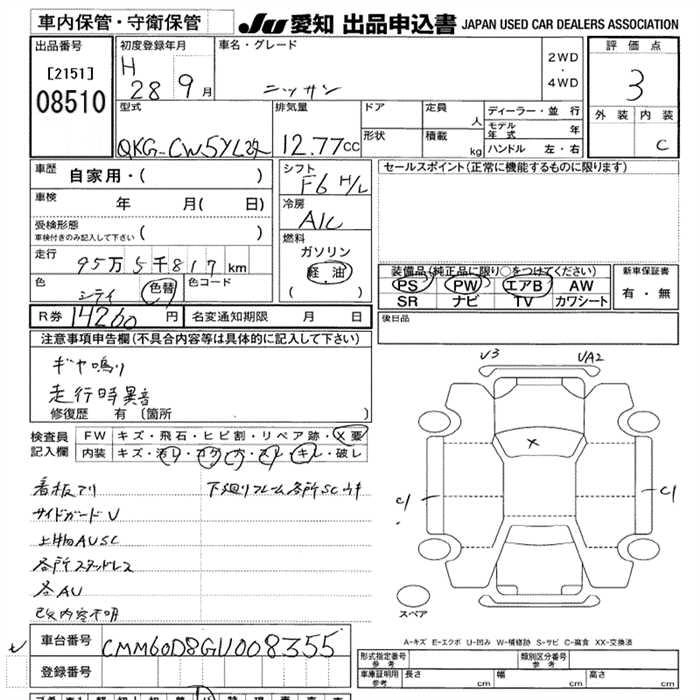 車内保管・守衛保管
JU 愛知 出品申込書 JAPAN USED CAR DEALERS ASSOCIATION
出品番号
[2151]
08510
初度登録年月
H 28 9月
車名・グレード
ニッサン
2WD
・
4WD
評価点
3
外装 内装
C
型式
QKG-CW5YL改
排気量
12.77cc
ドア
形状
定員
人
積載
kg
ディーラー・並行
モデル年式 年
ハンドル 左・右
車歴
自家用・( )
車検
年 月( 日)
受検形態
車検付きのみ記入して下さい ( )
走行
95万5千817km
色
シティ
色替
色コード
シフト
F6 H/L
冷房
A/C
燃料
ガソリン
軽油
( )
セールスポイント(正常に機能するものに限ります)
装備品(純正品に限り○をつけてください)
PS PW エアB AW
SR ナビ TV カワシート
新車保証書
有・無
R券 14260円
名変通知期限 月 日
後日品
注意事項申告欄(不具合内容等は具体的に記入して下さい)
ギヤ鳴り
走行時異音
修復歴 有 〔箇所 〕
検査員
記入欄
FW キズ・飛石・ヒビ割・リペア跡・X要
内装 キズ・汚レ・コゲ・穴・スレ・キレ・破レ
看板アリ
下廻りフレーム各所SCサキ
サイドガードU
上物AUSC
各所ステッドレス
各AU
改内容不明
U3
UA2
X
C1
C1
スペア
A-キズ E-エクボ U-凹み W-補修跡 S-サビ C-腐食 XX-交換済
車台番号
CMM60D8GU008355
登録番号
形式指定番号
参考
類別区分番号
参考
車庫証明用
参考
長さ cm
幅 cm
高さ cm